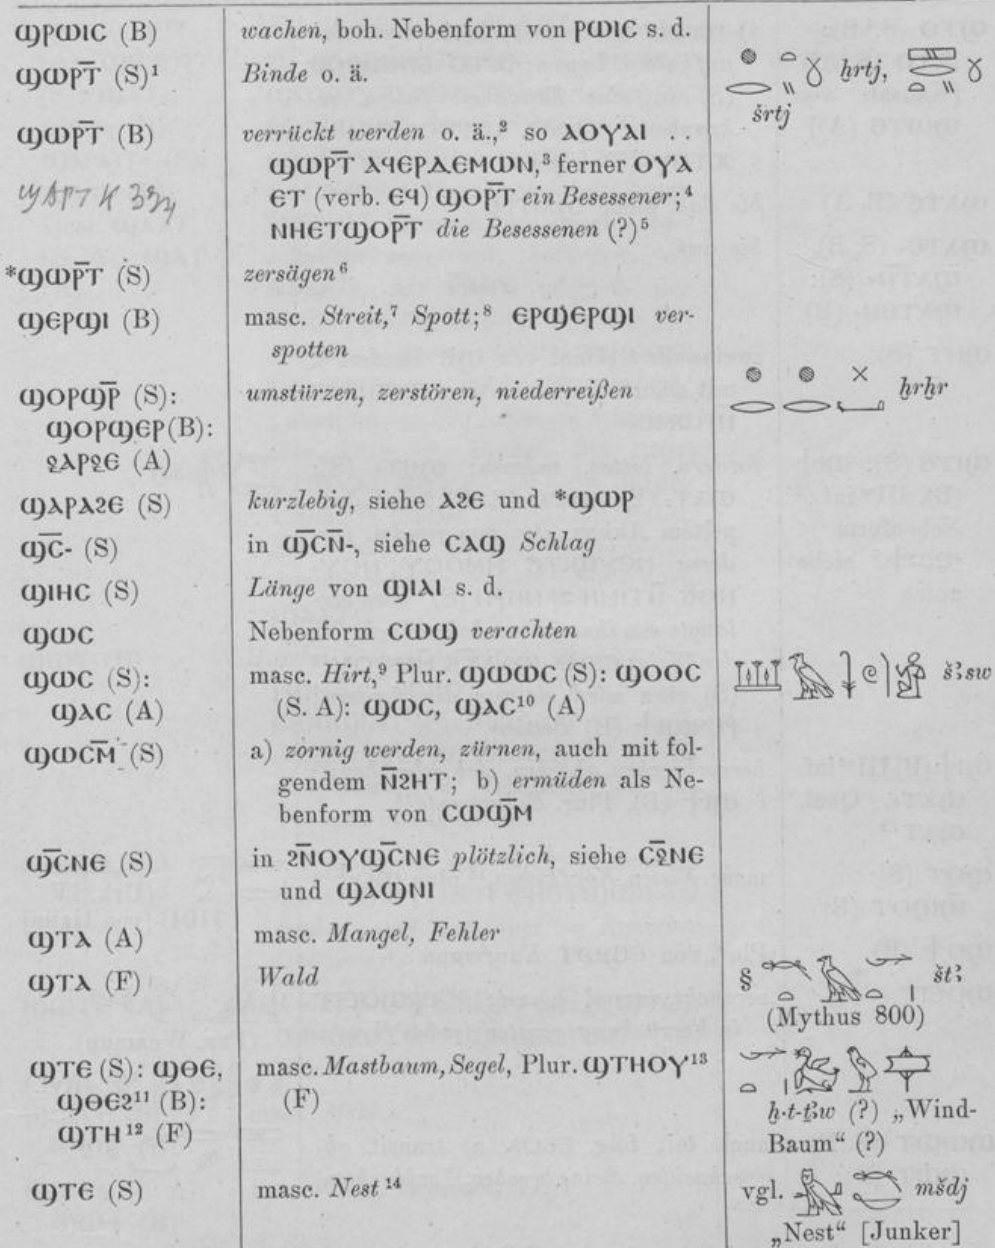 ϣⲣⲱⲓⲥ (B) wachen, boh. Nebenform von ⲣⲱⲓⲥ s. d.
ϣⲱⲣⲧ̅ (S)¹ Binde o. ä. ḫrtj,
šrtj
ϣⲱⲣⲧ̅ (B) verrückt werden o. ä.,² so ⲁⲟⲩⲁⲓ . . .
ϣⲱⲣⲧ̅ ⲁϥⲉⲣⲇⲉⲙⲱⲛ,³ ferner ⲟⲩⲁ
ϣⲁⲣⲧ K ⲉⲧ (verb. ⲉϥ) ϣⲟⲣⲧ̅ ein Besessener;⁴
ⲛⲏⲉⲧϣⲟⲣⲧ̅ die Besessenen (?)⁵
*ϣⲱⲣⲧ̅ (S) zersägen⁶
ϣⲉⲣϣⲓ (B) masc. Streit,⁷ Spott;⁸ ⲉⲣϣⲉⲣϣⲓ ver-
spotten
ϣⲟⲣϣⲣ̅ (S): umstürzen, zerstören, niederreißen ḫrḫr
ϣⲟⲣϣⲉⲣ (B):
ϩⲁⲣϩⲉ (A)
ϣⲁⲣⲁϩⲉ (S) kurzlebig, siehe ⲁϩⲉ und *ϣⲱⲣ
ϣⲥ̅- (S) in ϣⲥ̅ⲛ̅-, siehe ⲥⲁϣ Schlag
ϣⲓⲏⲥ (S) Länge von ϣⲓⲁⲓ s. d.
ϣⲱⲥ Nebenform ⲥⲱϣ verachten
ϣⲱⲥ (S): masc. Hirt,⁹ Plur. ϣⲱⲱⲥ (S): ϣⲟⲟⲥ šꜣsw
ϣⲁⲥ (A) (S. A): ϣⲱⲥ, ϣⲁⲥ¹⁰ (A)
ϣⲱⲥⲙ̅ (S) a) zornig werden, zürnen, auch mit fol-
gendem ⲛ̅ϩⲏⲧ; b) ermüden als Ne-
benform von ⲥⲱϣⲙ̅
ϣⲥ̅ⲛⲉ (S) in ϩⲛ̅ⲟⲩϣⲥ̅ⲛⲉ plötzlich, siehe ⲥϩ̅ⲛⲉ
und ϣⲁϣⲛⲓ
ϣⲧⲁ (A) masc. Mangel, Fehler
ϣⲧⲁ (F) Wald § štꜣ
(Mythus 800)
ϣⲧⲉ (S): ϣⲑⲉ, masc. Mastbaum, Segel, Plur. ϣⲧⲏⲟⲩ¹³
ϣⲑⲉϩ¹¹ (B): (F)
ϣⲧⲏ¹² (F) ḫ·t-ṯꜣw (?) „Wind-
Baum“ (?)
ϣⲧⲉ (S) masc. Nest¹⁴ vgl. mšdj
„Nest“ [Junker]